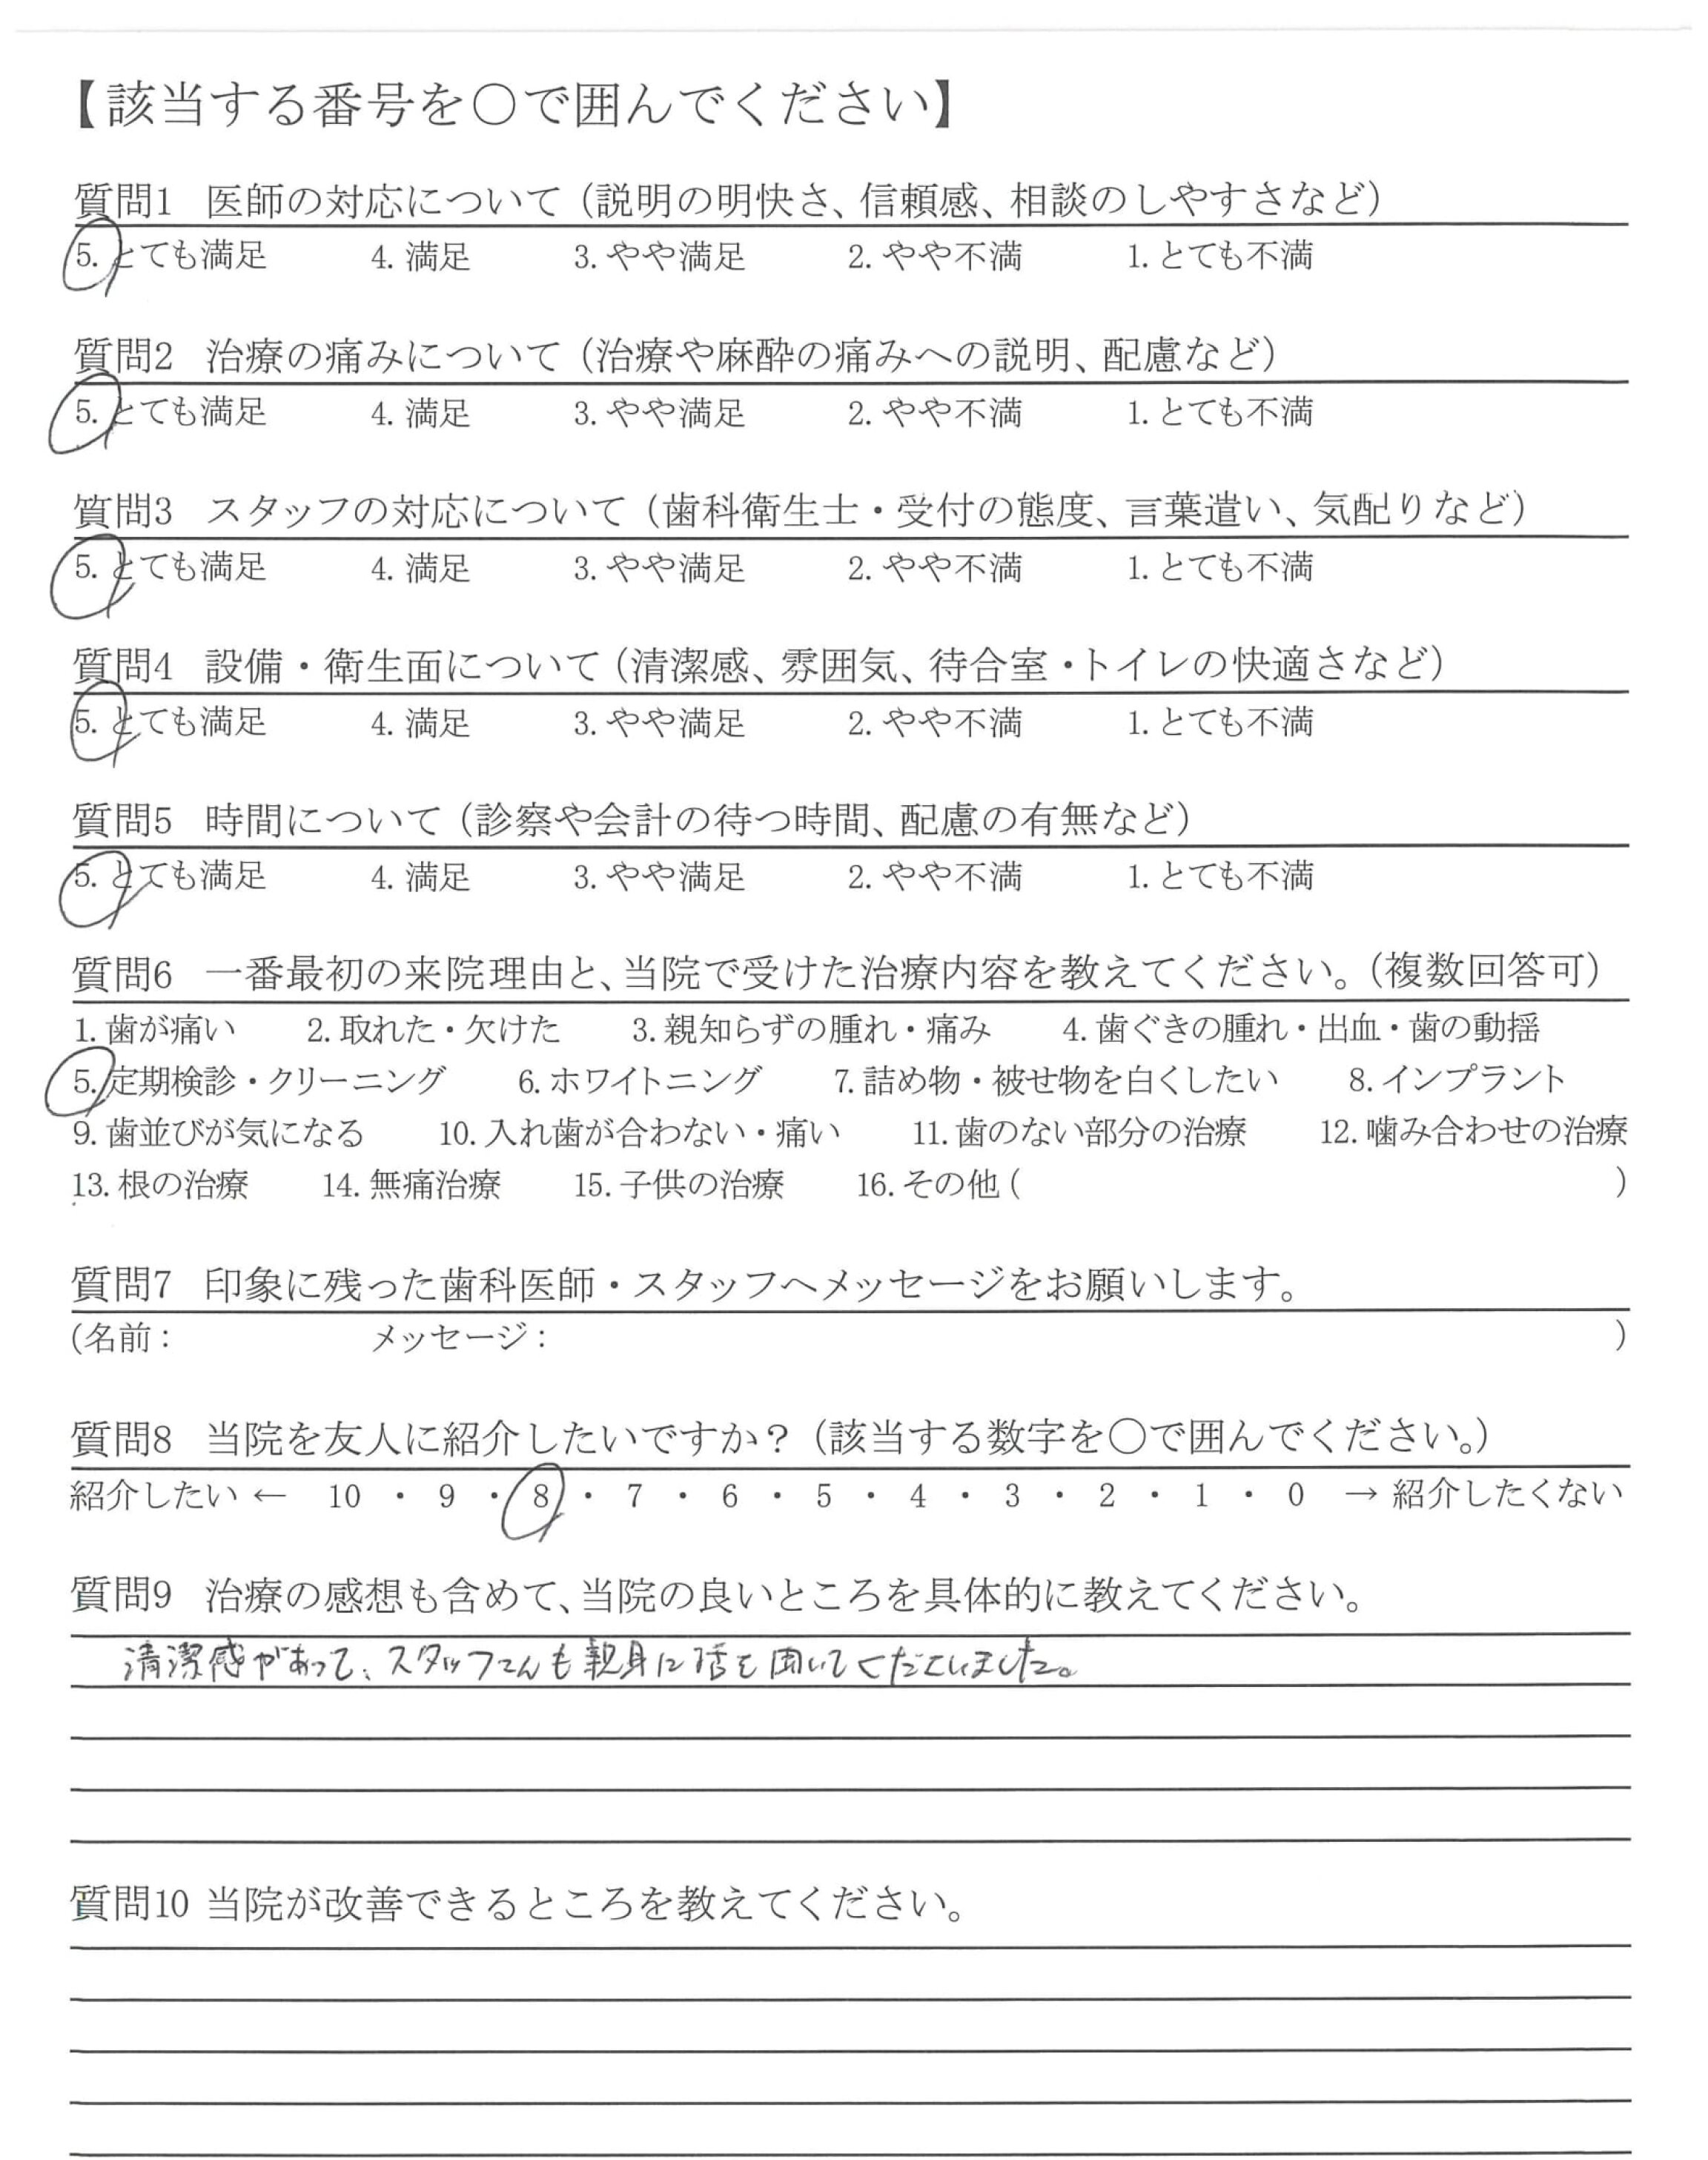 【該当する番号を〇で囲んでください】
質問1 医師の対応について（説明の明快さ、信頼感、相談のしやすさなど）
5. とても満足 4. 満足 3. やや満足 2. やや不満 1. とても不満
質問2 治療の痛みについて（治療や麻酔の痛みへの説明、配慮など）
5. とても満足 4. 満足 3. やや満足 2. やや不満 1. とても不満
質問3 スタッフの対応について（歯科衛生士・受付の態度、言葉遣い、気配りなど）
5. とても満足 4. 満足 3. やや満足 2. やや不満 1. とても不満
質問4 設備・衛生面について（清潔感、雰囲気、待合室・トイレの快適さなど）
5. とても満足 4. 満足 3. やや満足 2. やや不満 1. とても不満
質問5 時間について（診察や会計の待つ時間、配慮の有無など）
5. とても満足 4. 満足 3. やや満足 2. やや不満 1. とても不満
質問6 一番最初の来院理由と、当院で受けた治療内容を教えてください。（複数回答可）
1. 歯が痛い 2. 取れた・欠けた 3. 親知らずの腫れ・痛み 4. 歯ぐきの腫れ・出血・歯の動揺
5. 定期検診・クリーニング 6. ホワイトニング 7. 詰め物・被せ物を白くしたい 8. インプラント
9. 歯並びが気になる 10. 入れ歯が合わない・痛い 11. 歯のない部分の治療 12. 噛み合わせの治療
13. 根の治療 14. 無痛治療 15. 子供の治療 16. その他 ( )
質問7 印象に残った歯科医師・スタッフへメッセージをお願いします。
(名前： メッセージ： )
質問8 当院を友人に紹介したいですか？（該当する数字を〇で囲んでください。）
紹介したい ← 10 ・ 9 ・ 8 ・ 7 ・ 6 ・ 5 ・ 4 ・ 3 ・ 2 ・ 1 ・ 0 → 紹介したくない
質問9 治療の感想も含めて、当院の良いところを具体的に教えてください。
清潔感があって、スタッフさんも親身に話を聞いてくださいました。
質問10 当院が改善できるところを教えてください。